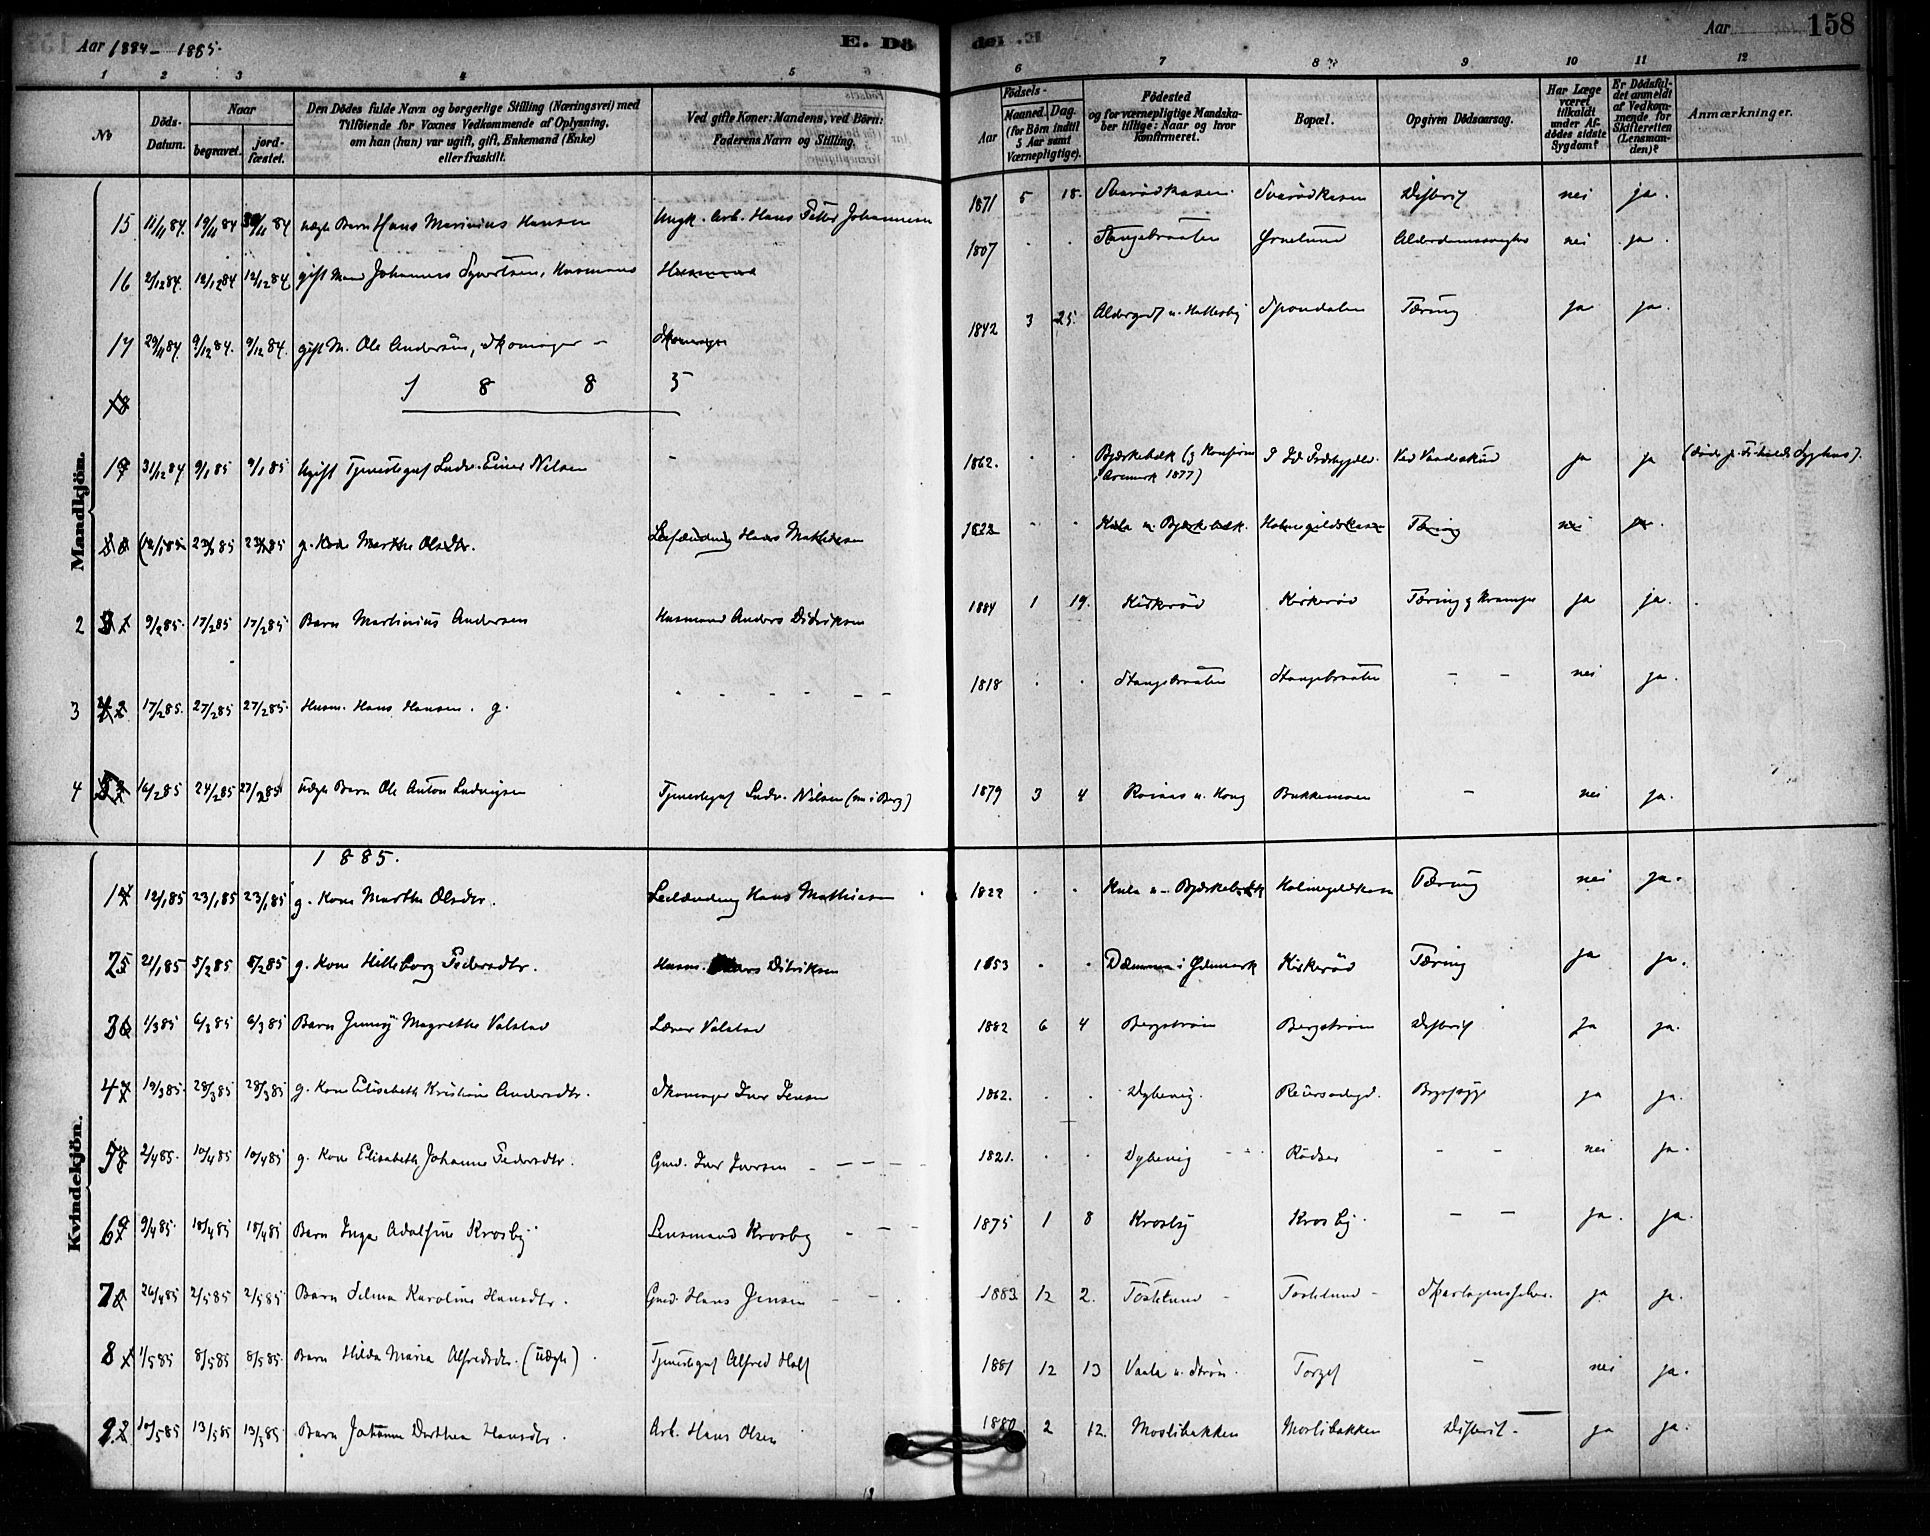 Aar 1884 - 1885.
E. Dö
Aar 158
1 2 3 4 5 6
6 7 8 9 10 11 12
No
Döds-Datum.
Naar
begravet.
jord-fæstet.
Den Dödes fulde Navn og borgerlige Stilling (Næringsvei) med
Tilföiende for Voxnes Vedkommende af Oplysning,
om han (hun) var ugift, gift, Enkemand (Enke)
eller fraskilt.
Ved gifte Koner: Mandens, ved Börn:
Faderens Navn og Stilling.
Födsels-
Aar
Maaned. Dag.
(for Börn indtil
5 Aar samt
Værnepligtige).
Födested
og for værnepligtige Mandska-
ber tillige: Naar og hvor
konfirmeret.
Bopæl.
Opgiven Dödsaarsag.
Har Læge
været
tilkaldt
under Af-
dödes sidste
Sygdom?
Er Dödsfal-
det anmeldt
af Vedkom-
mende for
Skifteretten
(Lensman-
den)?
Anmærkninger.
Mandkjön.
15 11/11 84. 19/11 84 30/11 84 uægte Barn Hans Marinius Hansen Ungk. Arb. Hans Petter Johannesen 1871 5 18. Svarödkasen. Svarödkasen nei ja.
16 2/12 84. 12/12 84 12/12 84 gift Mand Johannes Syvertsen, Husmand Husmand 1807 . . Stangebraaten nei ja.
17 29/11 84. 9/12 84. 9/12 84. gift M. Ole Andersen, Skomager - Skomager 1842 3 25. Tæring ja ja.
18
1 8 8 5
19 31/12 84 9/1 85 9/1 85 Ugift Tjenestegut Ludv. Einer Nilsen - 1862. . . Bjærkebæk (g Konfirm
i Aremark 1877) ja ja
g. Kone Marthe Olsdtr. Leilænding Hans Mathiesen 1822 - . Kula u. Bjærkebæk. Holmegildskasen Tæring nei ja.
2 9/2 85. 17/2 85 17/2 85 Barn Martinius Andersen Husmand Anders Didriksen 1884 1 19. Kirkeröd Kirkeröd Tæring g Krampe ja ja.
3 17/2 85. 27/2 85 27/2 85. Husm. Hans Hansen. g. - - - 1818 . . Stangebraaten Stangebraaten - - nei ja.
4 16/2 85 24/2 85 27/2 85 uægte Barn Ole Anton Ludvigsen Tjenestegut Ludv. Nilsen (nu i Berg) 1879 3 4 Bakkemoen - nei ja.
Kvindekjön.
1885.
1 12/1 85 23/1 85 23/1 85 g. Kone Marthe Olsdtr. Leilænding Hans Mathiesen 1822 . . Kula u. Bjærkebæk Holmegildskasen Tæring nei ja.
2 21/1 85 5/2 85 5/2 85 g. Kone Hilleborg Pedersdtr. Husm. Anders Didriksen 1853 . . Dammen i Ødemark Kirkeröd Tæring ja ja.
3 1/3 85 6/3 85 6/3 85 Barn Jenny Magrethe Valstad Lærer Valstad 1882 6 4 Bergström Bergström ja ja.
4 19/3 85. 28/3 85 28/3 85 g. Kone Elisabeth Kristine Andersdtr. Skomager Iver Jensen 1862. . . Dybevig. Brystsyge ja ja.
5 2/4 85. 10/4 85 10/4 85 g. Kone Elisabeth Johanne Pedersdtr. Gmd. Iver Iversen - - - 1821. . . Dybevig - Rödsee - - nei ja.
6 9/4 85. 18/4 85 18/4 85 Barn Inga Adolfine Krosby Lensmand Krosby - - 1875 1 8 Krosby Krosby. - - ja. ja.
7 26/4 85 2/5 85 2/5 85 Barn Selma Karoline Hansdtr. Gmd. Hans Jensen - - 1883 12 2. Tostelund - Tostelund - Skarlagensfeber. ja ja.
8 1/5 85 8/5 85 8/5 85. Barn Hilda Maria Alfredsdtr. (uægte). Tjenestegut Alfred Holt 1881 12 13 - nei ja.
9 10/5 85 13/5 85 13/5 85 Barn Johanne Dorthea Hansdtr. Arb. Hans Olsen 1880 2 12. Moslibakken Moslibakken ja ja.